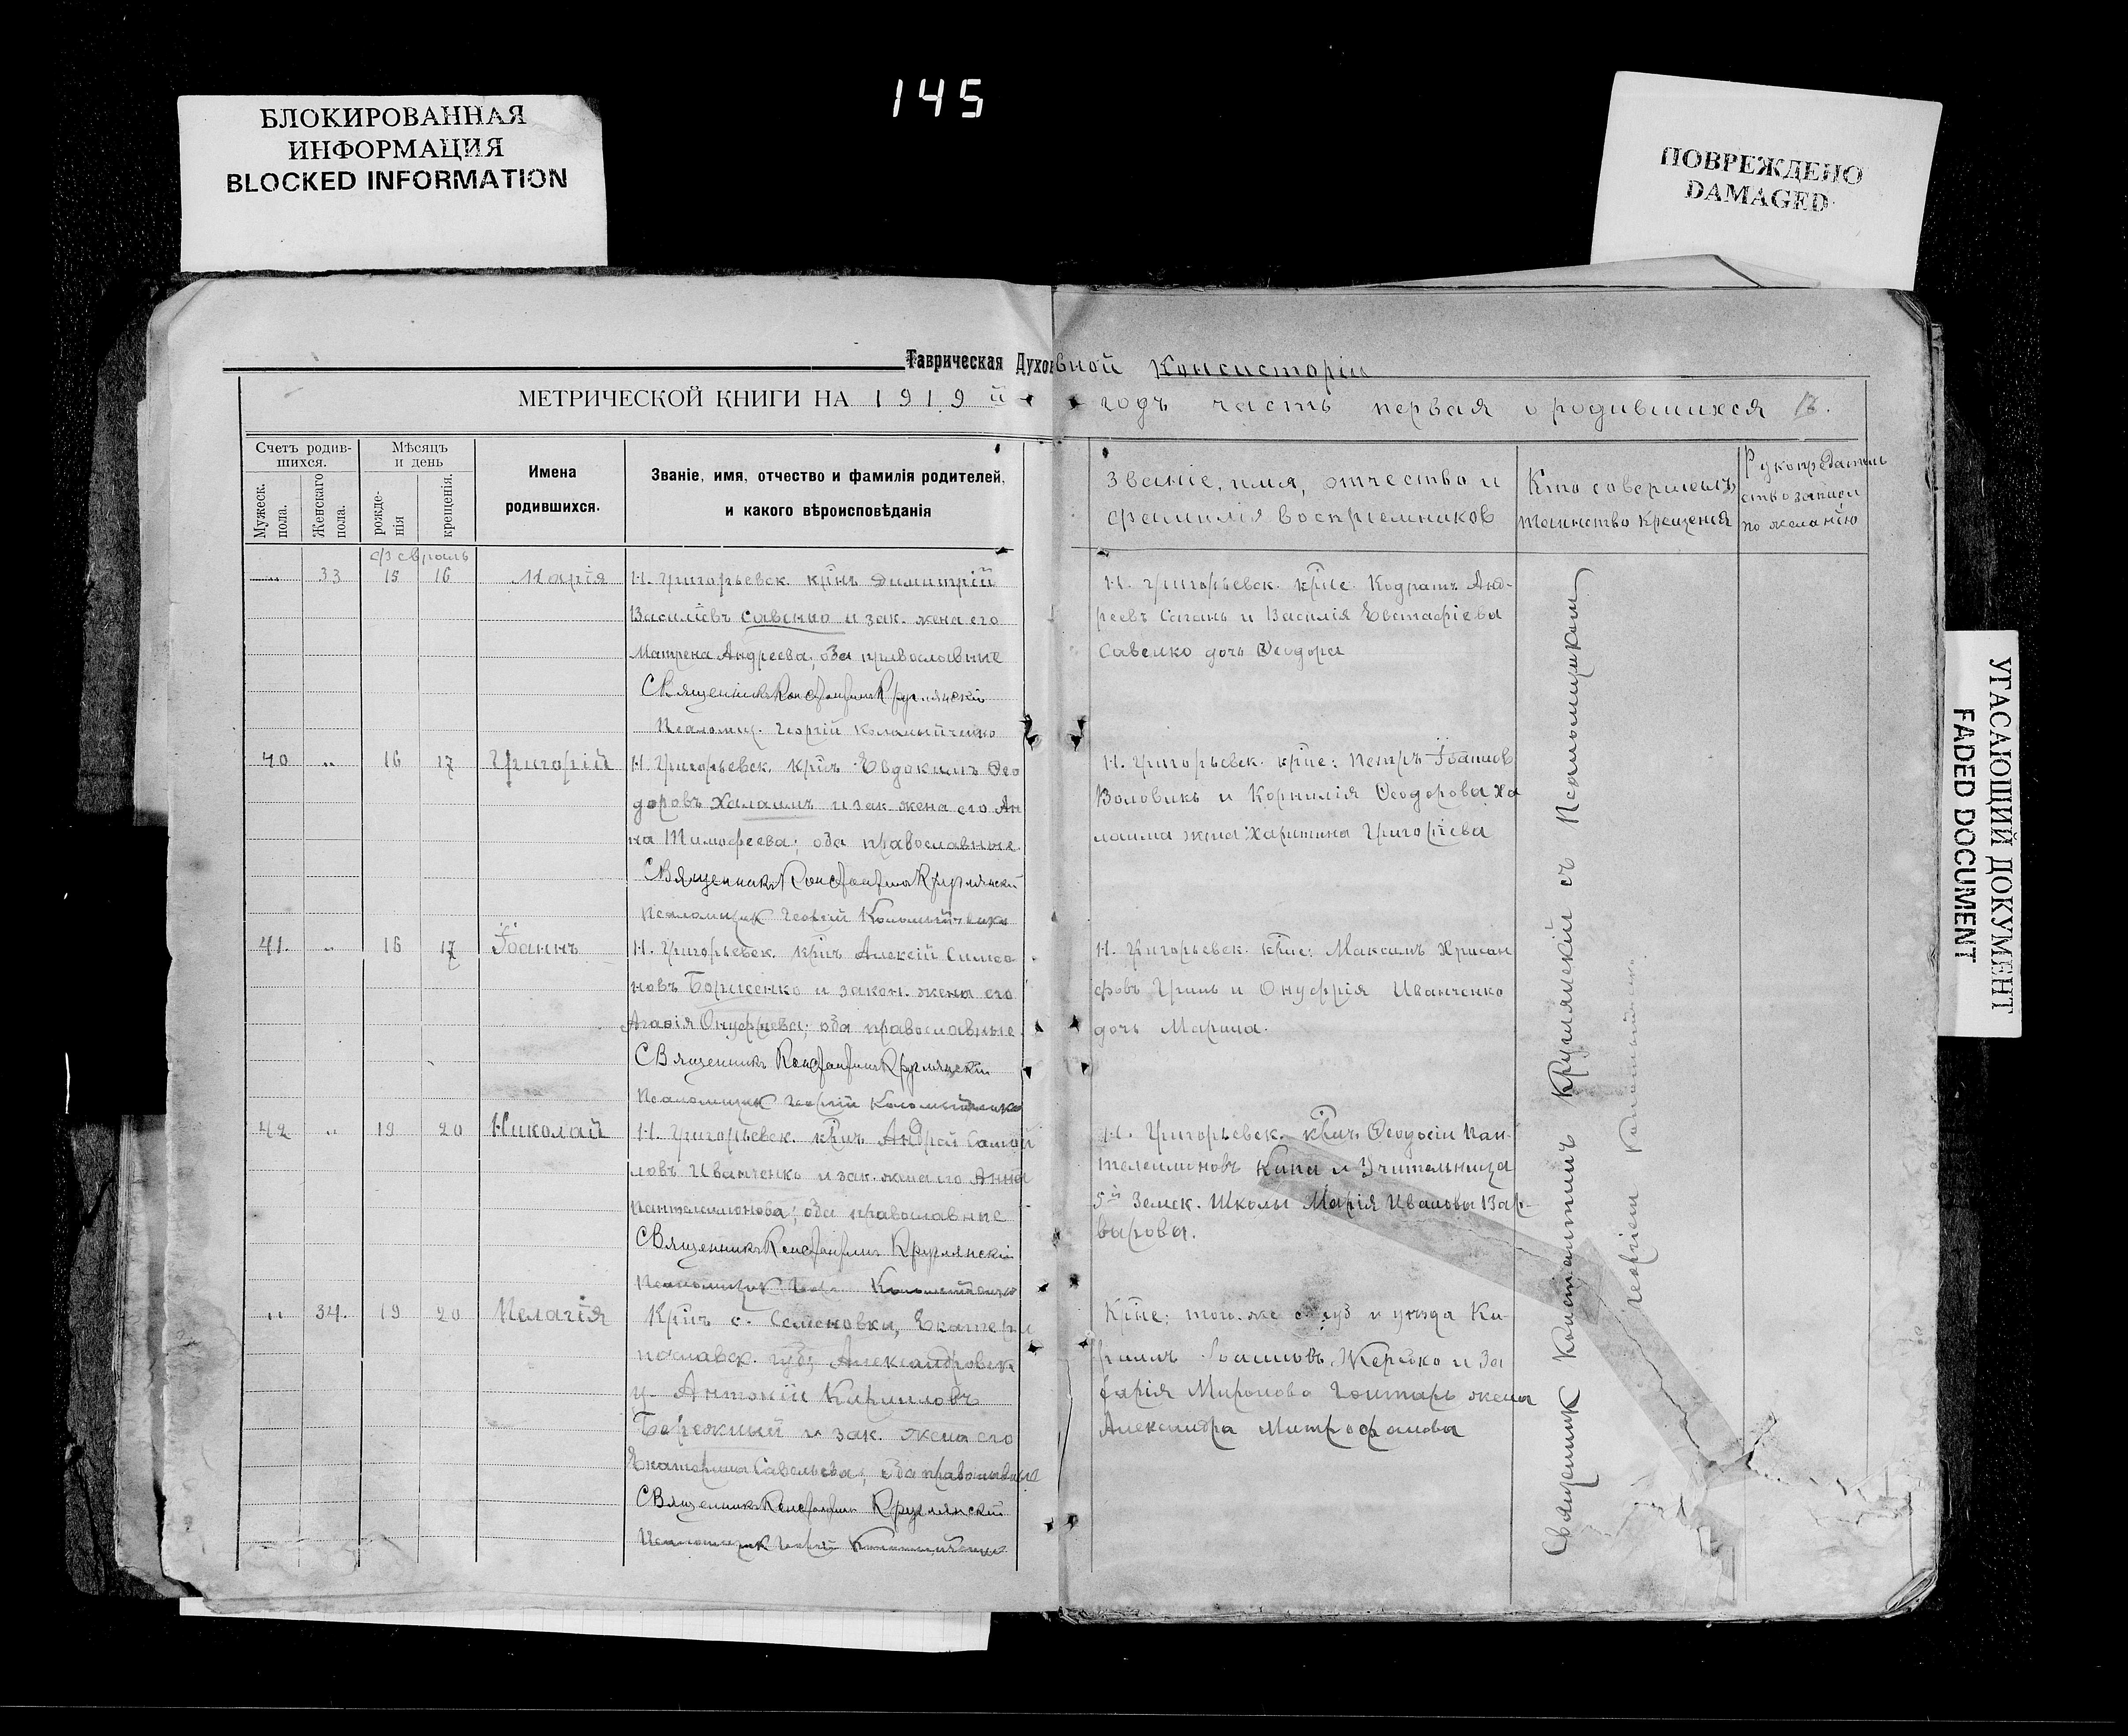 145
БЛОКИРОВАННАЯ
ИНФОРМАЦИЯ
BLOCKED INFORMATION
ПОВРЕЖДЕНО
DAMAGED
УГАСАЮЩИЙ ДОКУМЕНТ
FADED DOCUMENT
Таврическая Духовной Консисторіи
МЕТРИЧЕСКОЙ КНИГИ НА 1919 й годъ часть первая о родившихся
Счетъ родив-
шихся.
Мужеск.
пола.
Женскаго
пола.
Мѣсяцъ
и день
рожде-
нія
крещенія.
Имена
родившихся.
Званіе, имя, отчество и фамилія родителей,
и какого вѣроисповѣданія
Званіе, имя, отчество и
фамилія воспріемников
Кто совершалъ
таинство крещенія
ство записи
по желанію
февраль
33 15 16 Марія
Н. Григорьевск. крнъ Димитрій
Василіевъ Савенко и зак. жена его
Матрена Андреева; оба православные
Священникъ Константин Круглянскій
Псаломщ. Георгій Коломыйченко
Н. Григорьевск. кр͠не Кодратъ Анд-
реевъ Сагань и Василія Евстафіева
Савенко дочь Ѳеодора
40 " 16 17 Григорій
Н. Григорьевск. кр͠нъ Евдокимъ Ѳео
доровъ Халаимъ и зак. жена его Ан
на Тимофеева; оба православные.
Священникъ Константин Круглянскій
Псаломщик Георгій Коломыйченко
Н. Григорьевск. кр͠не: Петръ Іоанов
Воловикъ и Корнилія Ѳеодорова Ха
лаима жена Харитина Григоріева
41. " 16 17 Іоаннъ
Н. Григорьевск. кр͠нъ Алексій Симео-
новъ Борисенко и закон. жена его
Агафія Онуфріева; оба православные.
Священникъ Константин Круглянскій
Псаломщик Георгій Коломыйченко
Н. Григорьевск. кр͠не: Максимъ Хрисан
фовъ Гринь и Онуфрія Иванченко
дочь Марина.
42 " 19 20 Николай
Н. Григорьевск. кр͠нъ Андрей Самой
ловъ Иванченко и зак. жена его Анна
Пантелеимонова; оба православные
Священникъ Константин Круглянскій
Псаломщик Коломыйченко
Н. Григорьевск. кр͠нъ Ѳеодосій Пан-
телеимоновъ Кипа и Учительница
5й Земск. Школы Марія Иванова
" 34. 19 20 Пелагія
Кр͠нъ с. Семеновки, Екатери
нославск. губ; Александровск.
у. Антоній Кирилловъ
Бережный и зак. жена его
Екатерина Савельева; оба православные
Священникъ Константин Круглянскій
Псаломщик Георгій Коломыйченко
Кр͠не: того-же с. губ и уѣзда Ки-
риллъ Іоанновъ и За
харія Миронова Гонтарь жена
Александра Митрофанова
Священник Константинъ Круглянскій съ Псаломщиком
Георгіем Коломыйченко.